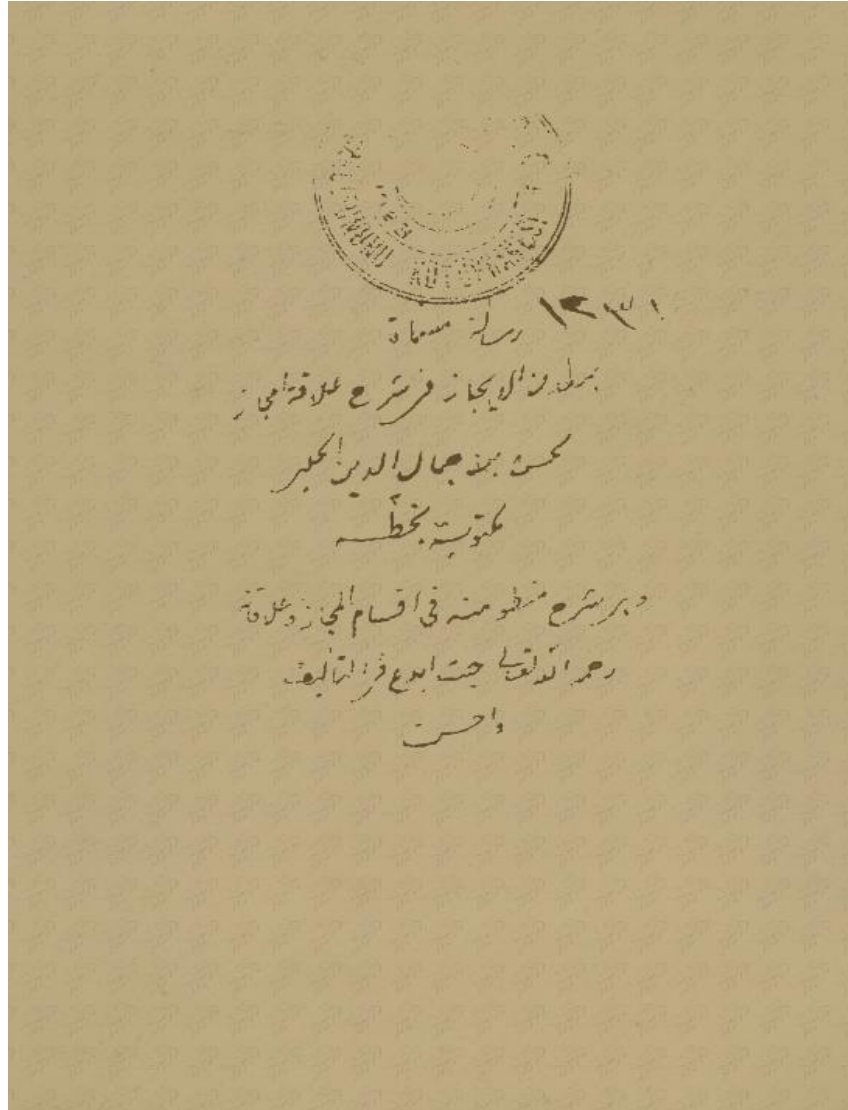 KÜTÜPHANESİ
١٢٣١
رسالة مسماة
بطراز الايجاز في شرح علاقة المجاز
لحسن بن جمال الدين الحلبي
مكتوبة بخطه
وهي شرح منظومته في اقسام المجاز وعلاقاته
رحمه الله تعالى حيث ابدع في التأليف
واحسن